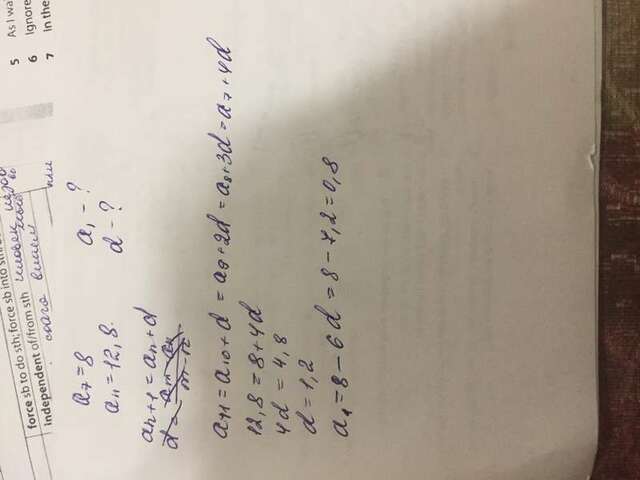 force sb to do sth; force sb into sth/
independent of/from sth человек
5 As I wa
6 Ignore
7 In the
a₇ = 8 a₁ - ?
a₁₁ = 12,8. d - ?
aₙ₊₁ = aₙ + d
d = aₘ - aₙ / m - n
a₁₁ = a₁₀ + d = a₉ + 2d = a₈ + 3d = a₇ + 4d
12,8 = 8 + 4d
4d = 4,8
d = 1,2
a₁ = 8 - 6d = 8 - 7,2 = 0,8